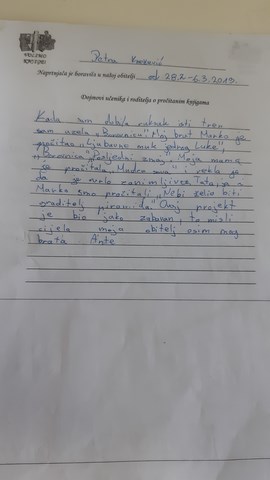 Petra
Naprtnjača je boravila u našoj obitelji od 28.2.-6.3.2019.
Dojmovi učenika i roditelja o pročitanim knjigama
Kada sam dobila ruksak isti tren
sam uzela "Bronovic". Moj brat Marko je
pročitao "Ljubavne muke jednog Luke",
"Posljednji znag". Moja mama
je pročitala "Modro " i rekla je
da je vrlo zanimljiva. Tata, ja i
Marko smo pročitali "Nebi želio biti
graditelj piramida". Ovaj projekt
je bio jako zabavan, to misli
cijela moja obitelj osim mog
brata Ante